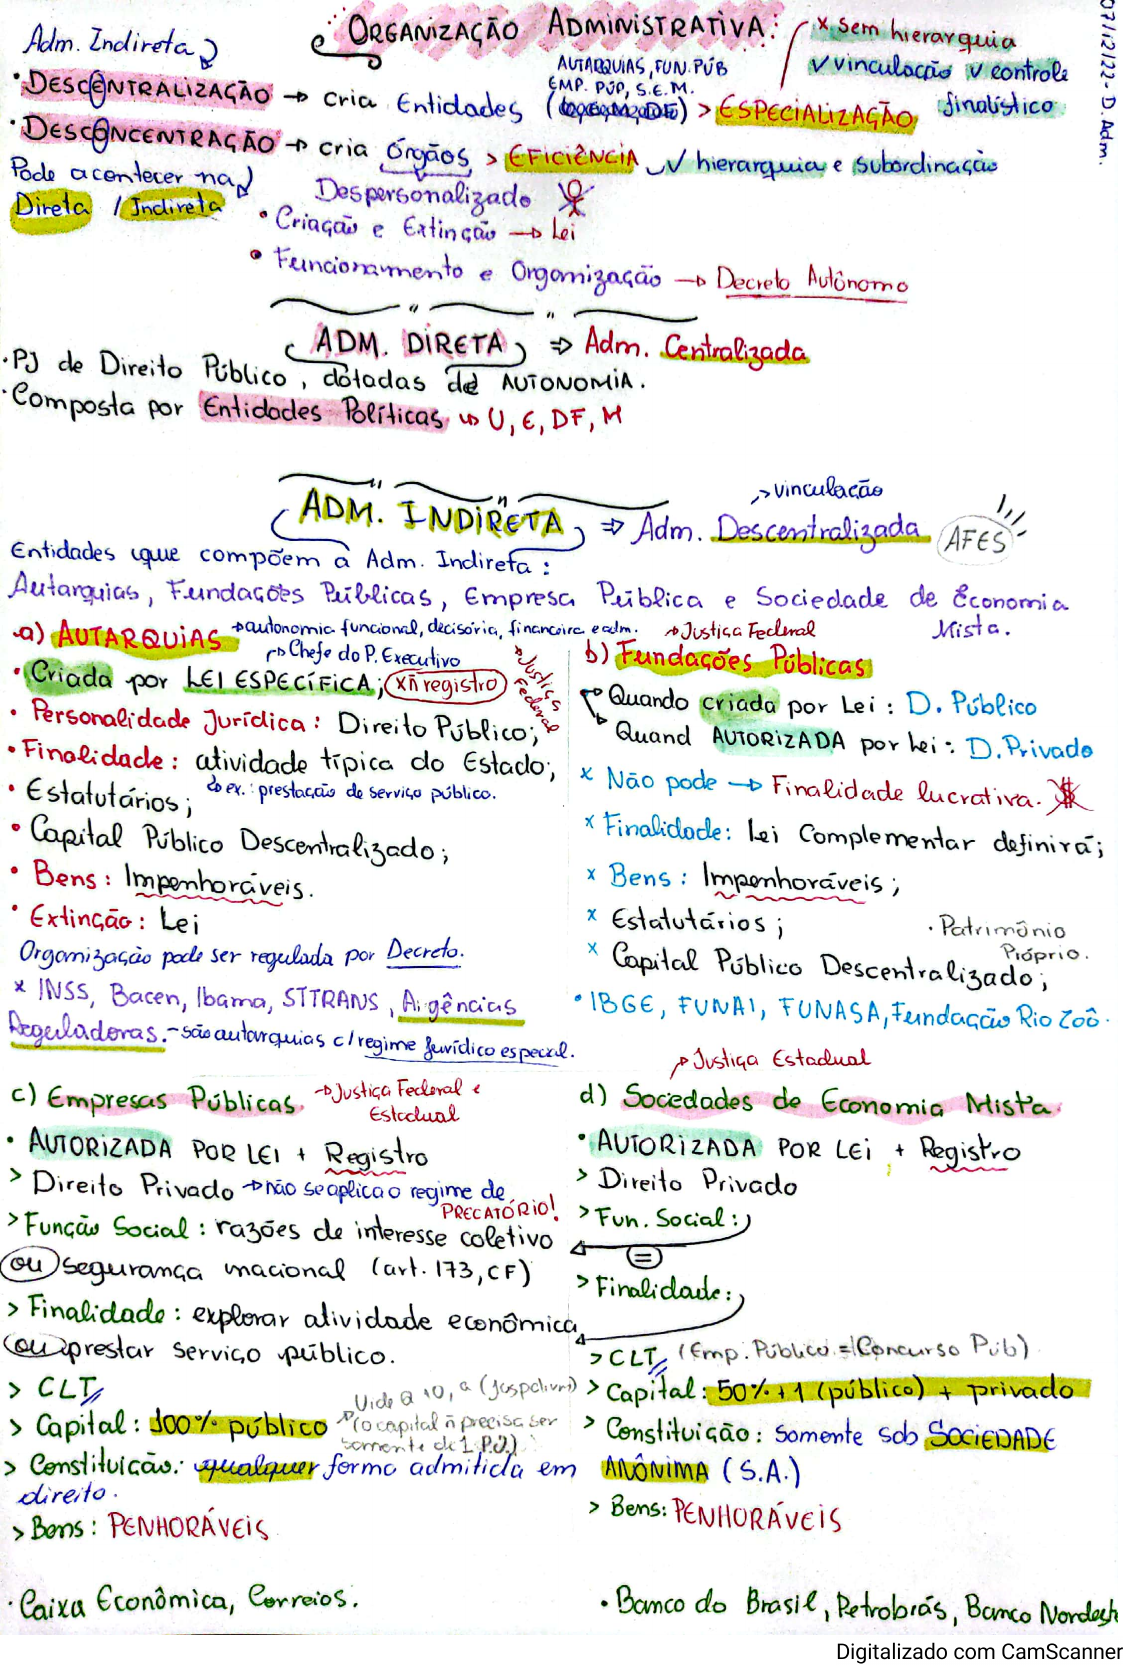 07/12/22 - D. Adm.
ORGANIZAÇÃO ADMINISTRATIVA:
x sem hierarquia
v vinculação v controle
finalístico
Adm. Indireta
• DESCENTRALIZAÇÃO → cria Entidades (
AUTARQUIAS, FUN. PÚB
EMP. PÚP, S.E.M.
) > ESPECIALIZAÇÃO
• DESCONCENTRAÇÃO → cria órgãos > EFICIÊNCIA v hierarquia e subordinação
Pode acontecer na
Direta / Indireta
Despersonalizado
• Criação e Extinção → Lei
• Funcionamento e Organização → Decreto Autônomo
ADM. DIRETA ⇒ Adm. Centralizada
• PJ de Direito Público, dotadas de AUTONOMIA.
• Composta por Entidades Políticas ↪ U, E, DF, M
→ vinculação
ADM. INDIRETA ⇒ Adm. Descentralizada
AFES
Entidades que compõem a Adm. Indireta:
Autarquias, Fundações Públicas, Empresa Pública e Sociedade de Economia
Mista.
a) AUTARQUIAS → autonomia funcional, decisória, financeira e adm.
→ Chefe do P. Executivo
→ Justiça Federal
• Criada por LEI ESPECÍFICA; x ñ registro
• Personalidade Jurídica: Direito Público;
• Finalidade: atividade típica do Estado;
↳ ex.: prestação de serviço público.
• Estatutários;
• Capital Público Descentralizado;
• Bens: Impenhoráveis.
• Extinção: Lei
Organização pode ser regulada por Decreto.
x INSS, Bacen, Ibama, STTRANS, Agências
Reguladoras. - são autarquias c/ regime jurídico especial.
→ Justiça Federal
b) Fundações Públicas
Quando criada por Lei: D. Público
Quand AUTORIZADA por Lei: D. Privado
x Não pode → Finalidade lucrativa. $
x Finalidade: Lei Complementar definirá;
x Bens: Impenhoráveis;
x Estatutários;
• Patrimônio
Próprio.
x Capital Público Descentralizado;
• IBGE, FUNAI, FUNASA, Fundação Rio Zoô.
c) Empresas Públicas → Justiça Federal e
Estadual
• AUTORIZADA POR LEI + Registro
> Direito Privado → não se aplica o regime de
PRECATÓRIO!
> Função Social: razões de interesse coletivo
ou segurança nacional (art. 173, CF)
> Finalidade: explorar atividade econômica
ou prestar serviço público.
> CLT
> Capital: 100% público
(o capital ñ precisa ser
somente de 1 P.J.)
> Constituição: qualquer forma admitida em
direito.
> Bens: PENHORÁVEIS
• Caixa Econômica, Correios.
→ Justiça Estadual
d) Sociedades de Economia Mista
• AUTORIZADA POR LEI + Registro
> Direito Privado
> Fun. Social:
=
> Finalidade:
> CLT (Emp. Público = Concurso Púb)
> Capital: 50% + 1 (público) + privado
> Constituição: Somente sob SOCIEDADE
ANÔNIMA (S.A.)
> Bens: PENHORÁVEIS
• Banco do Brasil, Petrobrás, Banco Nordeste
Digitalizado com CamScanner